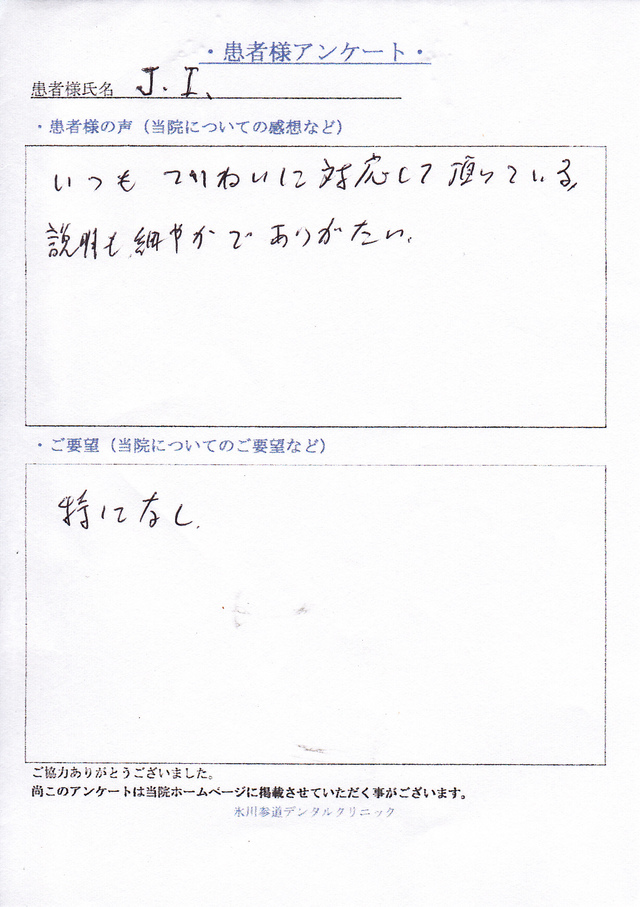 ・患者様アンケート・
患者様氏名 J.I.
・患者様の声（当院についての感想など）
いつも ていねいに 対応して 頂いている。
説明も 細やかで ありがたい。
・ご要望（当院についてのご要望など）
特になし。
ご協力ありがとうございました。
尚このアンケートは当院ホームページに掲載させていただく事がございます。
氷川参道デンタルクリニック